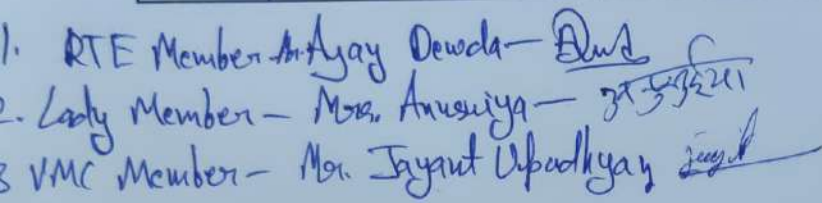 1. RTE Member Mr. Ajay Dewda –
2. Lady Member – Mrs. Anusuiya –
3 VMC Member – Mr. Jayant Upadhyay